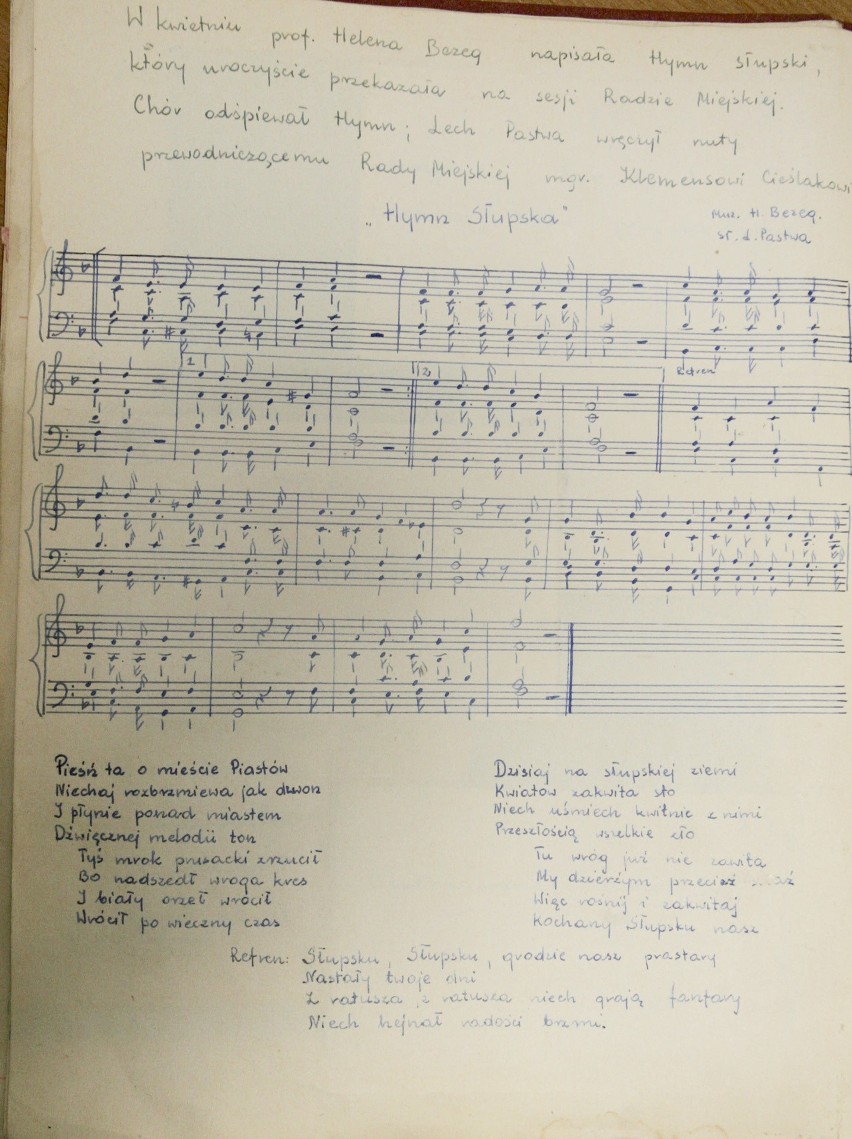 W kwietniu prof. Helena Bezeg napisała Hymn słupski,
który uroczyście przekazała na sesji Radzie Miejskiej.
Chór odśpiewał Hymn; Lech Pastwa wręczył nuty
przewodniczącemu Rady Miejskiej mgr. Klemensowi Cieślakowi
„Hymn Słupska"
Muz. H. Bezeg.
sł. L. Pastwa
1
2
Refren
Pieśń ta o mieście Piastów
Niechaj rozbrzmiewa jak dzwon
I płynie ponad miastem
Dźwięcznej melodii ton
Tyś mrok prusacki zrzucił
Bo nadszedł wroga kres
I biały orzeł wrócił
Wrócił po wieczny czas
Dzisiaj na słupskiej ziemi
Kwiatów zakwita sto
Niech uśmiech kwitnie z nimi
Przeszłością wszelkie zło
Tu wróg już nie zawita
My dzierżym przecież
Więc rośnij i zakwitaj
Kochany Słupsku nasz
Refren: Słupsku, Słupsku, grodzie nasz prastary
Nastały twoje dni
Z ratusza, z ratusza niech grają fanfary
Niech hejnał radości brzmi.